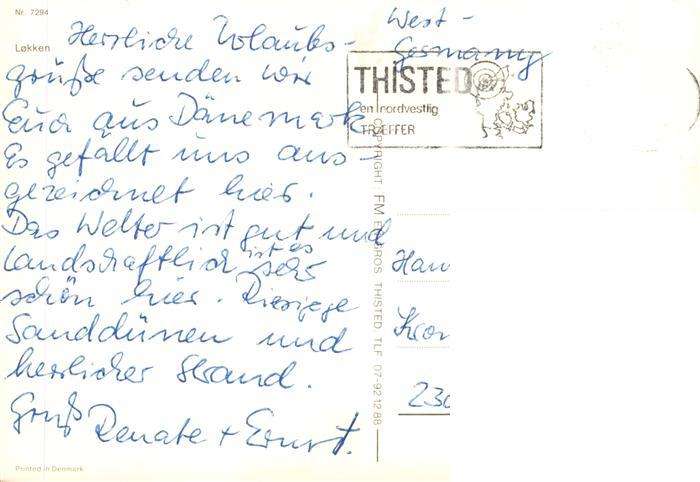 Nr. 7294
Løkken
Herrliche Urlaubs-
grüße senden wir
Euch aus Dänemark
Es gefällt uns aus-
gezeichnet hier.
Das Wetter ist gut und
landschaftlich ist es sehr
schön hier. Riesige
Sanddünen und
herrlicher Strand.
Gruß
Renate + Ernst.
Printed in Denmark
West-
Germany
THISTED
en nordvestlig
TRÆFFER
COPYRIGHT FM ENGROS THISTED TLF 07-921288
Han
Kron
230